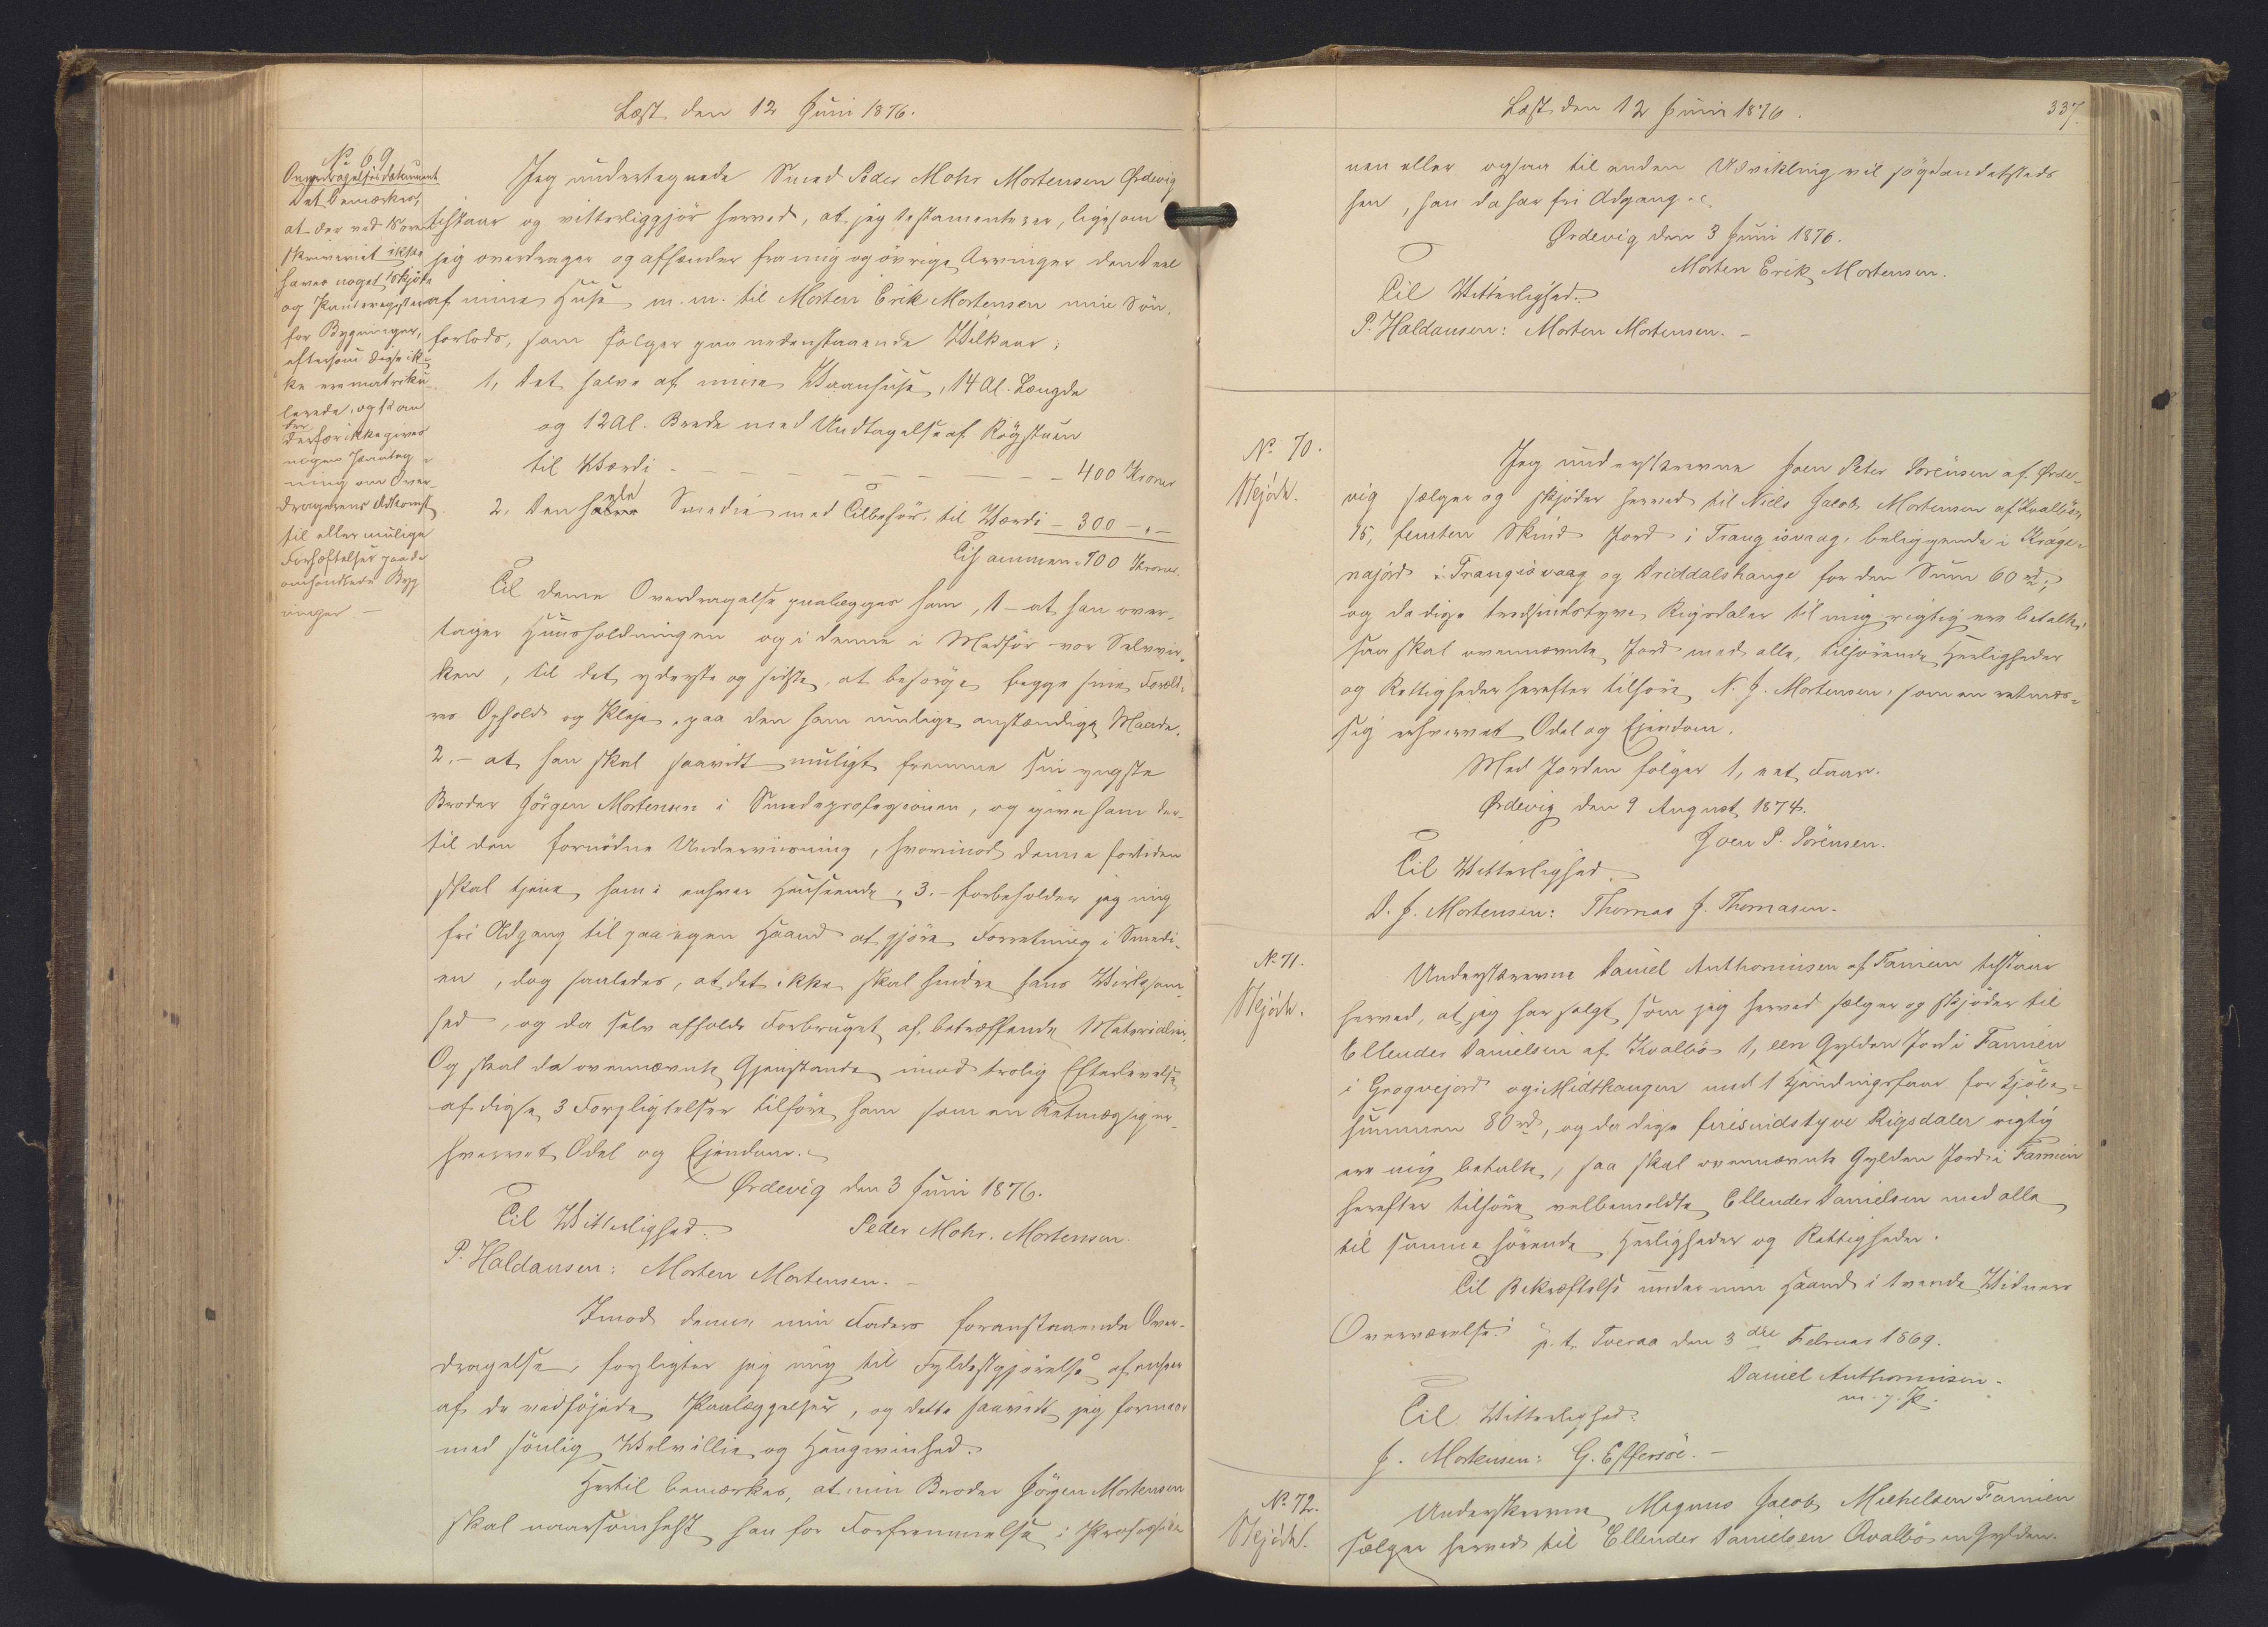 Læst den 12 Juni 1876.
No 69
Overdragelsesdokument
Det bemærkes,
at der ved Soren-
skriveriet ikke
haves noget Skjøde
og Panteregister
for Bygninger,
eftersom disse ik-
ke ere matriku-
lerede, og kan
der derfor ikke gives
nogen Paateg-
ning om Over-
dragerens Adkomst
til eller mulige
Forhæftelser paa de
omhandlede Byg-
ninger. —
Jeg undertegnede Smed Peder Mohr Mortensen Ørdevig
tilstaar og vitterliggjör herved, at jeg testamenterer, ligesom
jeg overdrager og afhænder fra mig og övrige Arvinger den Deel
af mine Huse m. m. til Morten Erik Mortensen min Sön,
forlods, som fölger paa nedenstaaende Vilkaar:
1, Det halve af mine Vaanhuse, 14 Al. Længde
og 12 Al. Brede med Undtagelse af Rögstuen
til Værdi - - - - - - - 400 Kroner
2. Den halve Smedie med Tilbehör, til Værdi - 300 -"-
Tilsammen 700 Kroner.
Til denne Overdragelse paalægges ham, 1 - at han over-
tager Huusholdningen og i denne i Medför vor Selvvir-
ken, til det yderste og sidste, at besörge begge sine Foræld-
res Ophold og Pleje, paa den ham mulige anstændige Maade.
2. - at han skal saavidt muligt fremme sin yngste
Broder Jörgen Mortensen i Smedeprofessionen, og give ham der-
til den fornödne Underviisning, hvorimod denne fortiden
skal tjene ham i enhver Henseende; 3. - forbeholder jeg mig
fri Adgang til paa egen Haand at gjöre Forretning i Smedi-
en, dog saaledes, at det ikke skal hindre hans Virksom-
hed, og da selv afholde Forbruget af betræffende Materialier.
Og skal da ovennævnte Gjenstande imod trolig Efterlevelse
af disse 3 Forpligtelser tilhöre ham som en Retmæssig er-
hvervet Odel og Ejendom.
Ørdevig den 3 Juni 1876.
Til Vitterlighed.
Peder Mohr. Mortensen.
P. Haldansen: Morten Mortensen. -
Imod denne min Faders foranstaaende Over-
dragelse, forpligter jeg mig til Fyldestgjörelse af enhver
af de vedföjede Paalæggelser, og dette saavidt jeg formaar
med sönlig Velvillie og Hengivenhed.
Hertil bemærkes, at min Broder Jörgen Mortensen
skal naarsomhelst han for Forfremmelse i Professio-
Læst den 12 Juni 1876.
337.
nen eller ogsaa til anden Udvikling vil söge andetsteds
hen, han da har fri Adgang.
Ørdevig den 3 Juni 1876.
Morten Erik Mortensen.
Til Vitterlighed.
P. Haldansen: Morten Mortensen. -
No 70.
Skjöde.
Jeg underskrevne Joen Peter Sörensen af Ørde-
vig sælger og skjöder herved til Niels Jacob Mortensen af Kvalbö,
15, femten Skind Jord i Trangisvaag, beliggende i Kråge-
najord i Trangisvaag og Driddalshauge for den Sum 60 rd;
og da disse tresindstyve Rigsdaler til mig rigtig ere betalte,
saa skal ovennævnte Jord med alle, tilhörende Herligheder
og Rettigheder herefter tilhöre N. J. Mortensen, som en retmæs-
sig erhvervet Odel og Ejendom.
Med Jorden fölger 1, eet Faar.
Ørdevig den 9 August 1874.
Joen P. Sörensen.
Til Vitterlighed.
D. J. Mortensen: Thomas J. Thomasen.
No 71.
Skjöde.
Underskrevne Daniel Anthoniisen af Famien tilstaar
herved, at jeg har solgt som jeg herved sælger og skjöder til
Ellender Danielsen af Kvalbö 1, een Gylden Jord i Famien
i Grogvejord og i Midthaugen med 1 Hjendingsfaar for Kjöbe-
summen 80 rd, og da disse firesindstyve Rigsdaler rigtig
ere mig betalte, saa skal ovennævnte Gylden Jord i Famien
herefter tilhöre velbemeldte Ellender Danielsen med alle
til samme hörende Herligheder og Rettigheder.
Til Bekræftelse under min Haand i tvende Vidners
Overværelse.
p. t. Tveraa den 3die Februar 1869.
Daniel Anthoniisen.
m. f. P.
Til Vitterlighed:
J. Mortensen: G. Effersöe. -
No 72.
Skjöde.
Underskrevne Magnus Jacob Michelsen Famien
sælger herved til Ellender Danielsen Qvalbö en Gylden